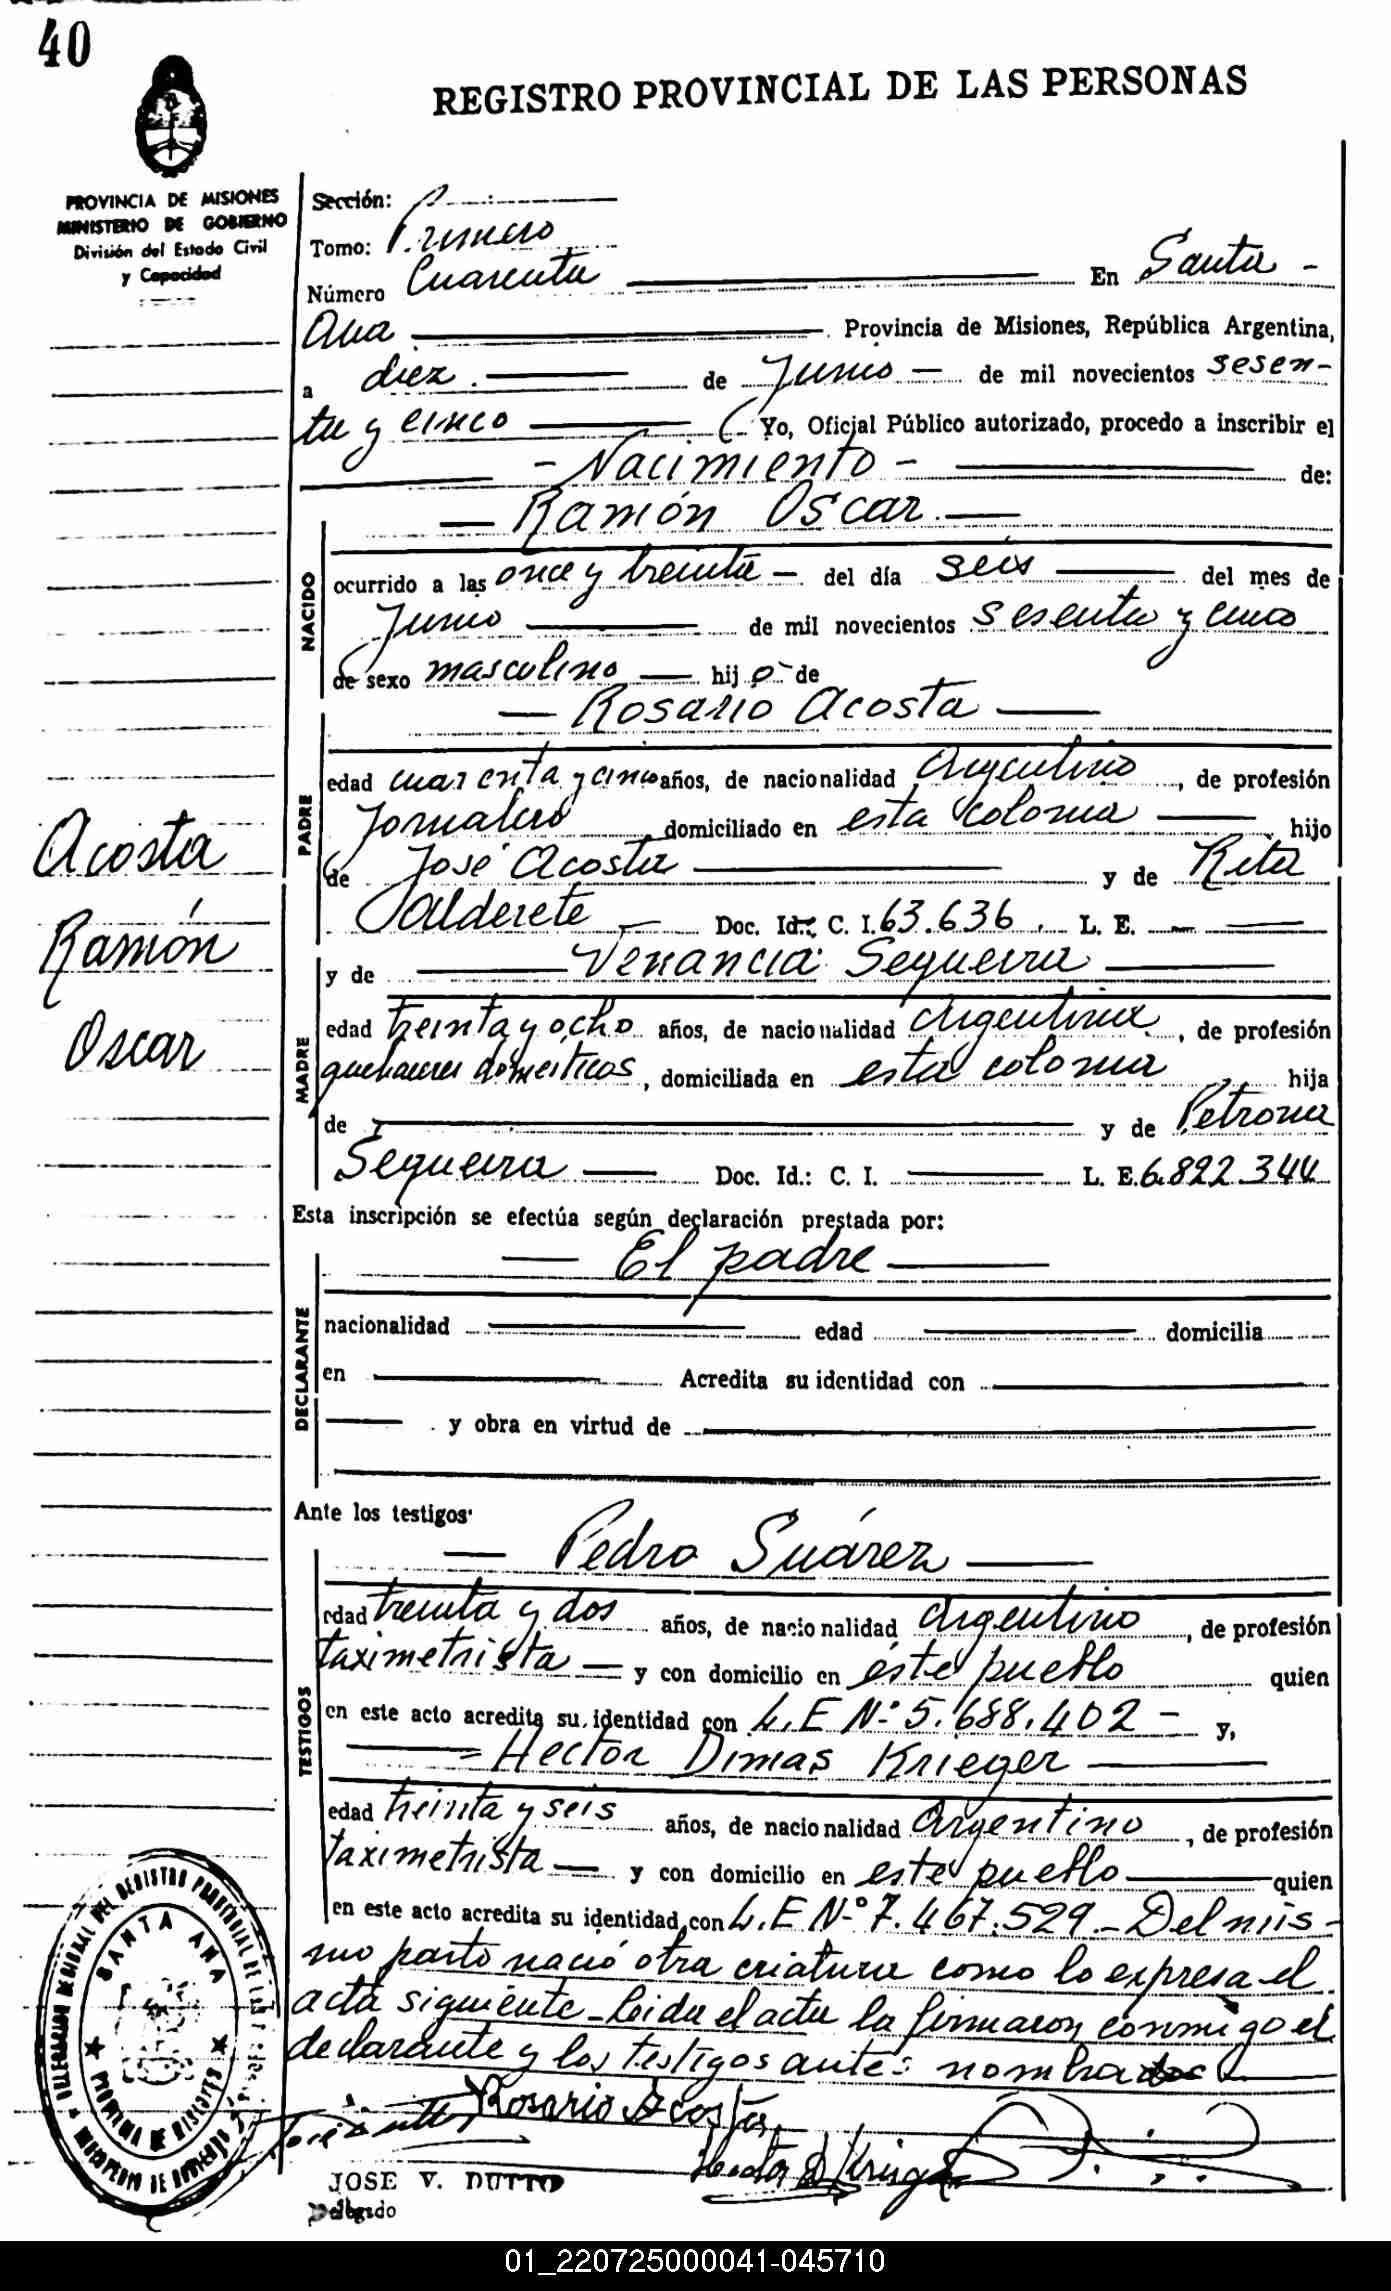 40
REGISTRO PROVINCIAL DE LAS PERSONAS
PROVINCIA DE MISIONES
MINISTERIO DE GOBIERNO
División del Estado Civil
y Capacidad
Sección:
Tomo: Primero
Número Cuarenta En Santa -
Ana Provincia de Misiones, República Argentina,
a diez de Junio de mil novecientos sesen-
ta y cinco Yo, Oficial Público autorizado, procedo a inscribir el
- Nacimiento - de:
Ramón Oscar
NACIDO
ocurrido a las once y treinta - del día seis del mes de
Junio de mil novecientos sesenta y cinco
de sexo masculino hijo de
Rosario Acosta
PADRE
edad cuarenta y cinco años, de nacionalidad Argentino, de profesión
Jornalero domiciliado en esta colonia hijo
de José Acosta y de Rita
Valderete Doc. Id.: C. I. 63.636. L. E.
y de Venancia Sequeira
MADRE
edad treinta y ocho años, de nacionalidad Argentina, de profesión
quehaceres domésticos, domiciliada en esta colonia hija
de y de Petrona
Sequeira Doc. Id.: C. I. L. E. 6.822.344
Esta inscripción se efectúa según declaración prestada por:
El padre
DECLARANTE
nacionalidad edad domicilia
en Acredita su identidad con
y obra en virtud de
Ante los testigos:
Pedro Suárez
TESTIGOS
edad treinta y dos años, de nacionalidad Argentino, de profesión
taximetrista y con domicilio en éste pueblo quien
en este acto acredita su identidad con L.E Nº 5.688.402 - y,
Hector Dimas Krieger
edad treinta y seis años, de nacionalidad Argentino, de profesión
taximetrista y con domicilio en este pueblo quien
en este acto acredita su identidad con L.E Nº 7.467.529 - Del mis-
mo parto nació otra criatura como lo expresa el
acta siguiente - Leida el acta la firmaron conmigo el
declarante y los testigos antes nombrados
Rosario Acosta
Hector D Krieger
JOSE V. DUTTO
Delegado
Acosta
Ramón
Oscar
SANTA ANA
PROVINCIA DE MISIONES
01_220725000041-045710